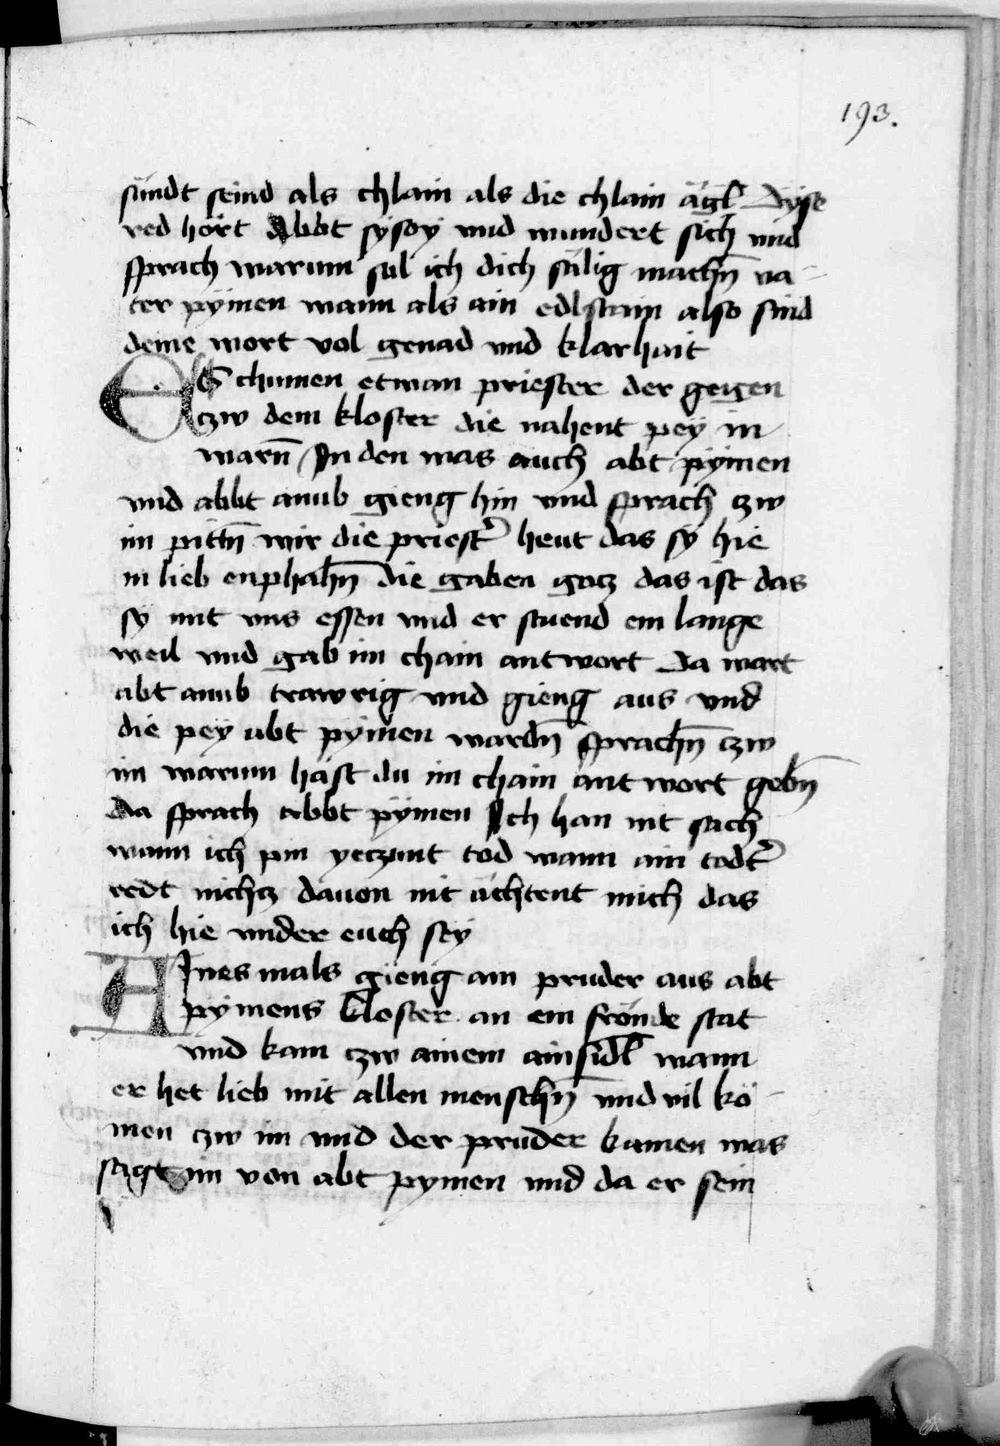 193.
sündt seind als chlain als die chlain ägl Dyse
red hört Abbt sysoy vnd wundert sich vnd
sprach warum sul ich dich sälig machn̄ va-
ter pymen wann als ain edlstain also sind
deine wort vol genad vnd klarhait
ES chumen etwan priester der gegen
czw dem kloster die nahent pey in
warn̄ In den was auch abt pymen
vnd abbt anub gieng hin vnd sprach czw
im pittn̄ wir die priestˀ heut das sy hie
in lieb enphahn̄ die gaben gotz das ist das
sy mit vns essen vnd er stuend ein lange
weil vnd gab im chain antwort Da wart
abt anub trawrig vnd gieng aus vnd
die pey abt pymen wardn̄ sprachn̄ czw
im warum hast du im chain antwort gebn̄
Da sprach abbt pymen Ich han nit sach
wann ich pin yeczunt tod wann ain todtˀ
redt nichtz dauon nit achtent mich das
ich hie vnder euch sey
AInes mals gieng ain pruder aus abt
pymens kloster an ein frönde stat
vnd kam czw ainem ainsidl wann
er het lieb mit allen menschn̄ vnd vil kö-
men czw im vnd der pruder kamen was
sagt im von abt pymen vnd da er sein